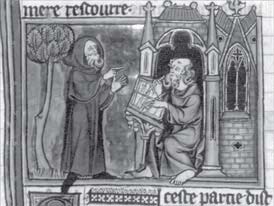 mere restourre.
Ceste partie dist